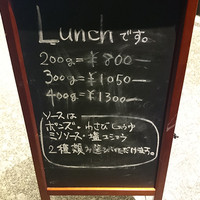 Lunchです。
200g=¥800—
300g=¥1050—
400g=¥1300—
ソースは
ポンズ・わさびしょうゆ
ミソソース・塩コショウ
2種類お選びいただけます。